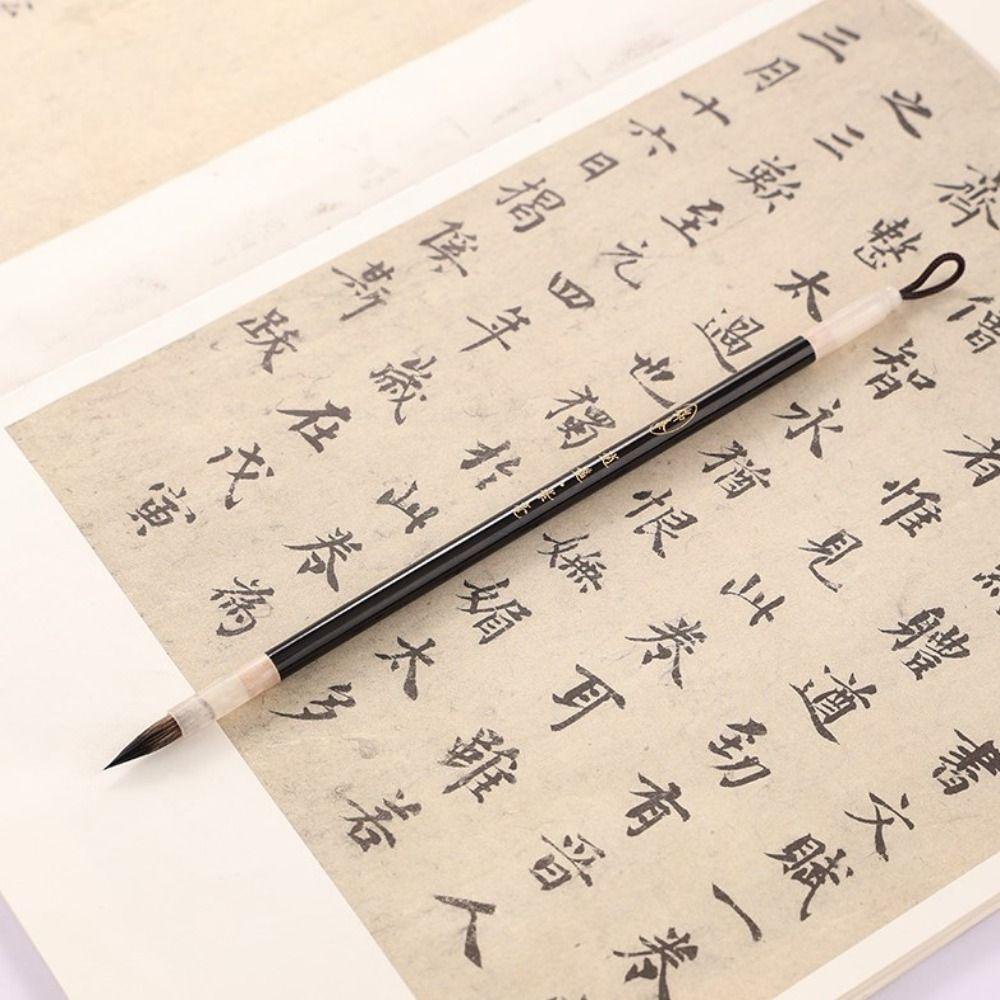 書文賦一卷
體遒勁有晉人
者惟見此卷耳雖若
僧智永猶恨嫵媚太多
齊整太過也獨於此卷為
之三歎至元四年歲在戊寅
三月十六日揭傒斯跋